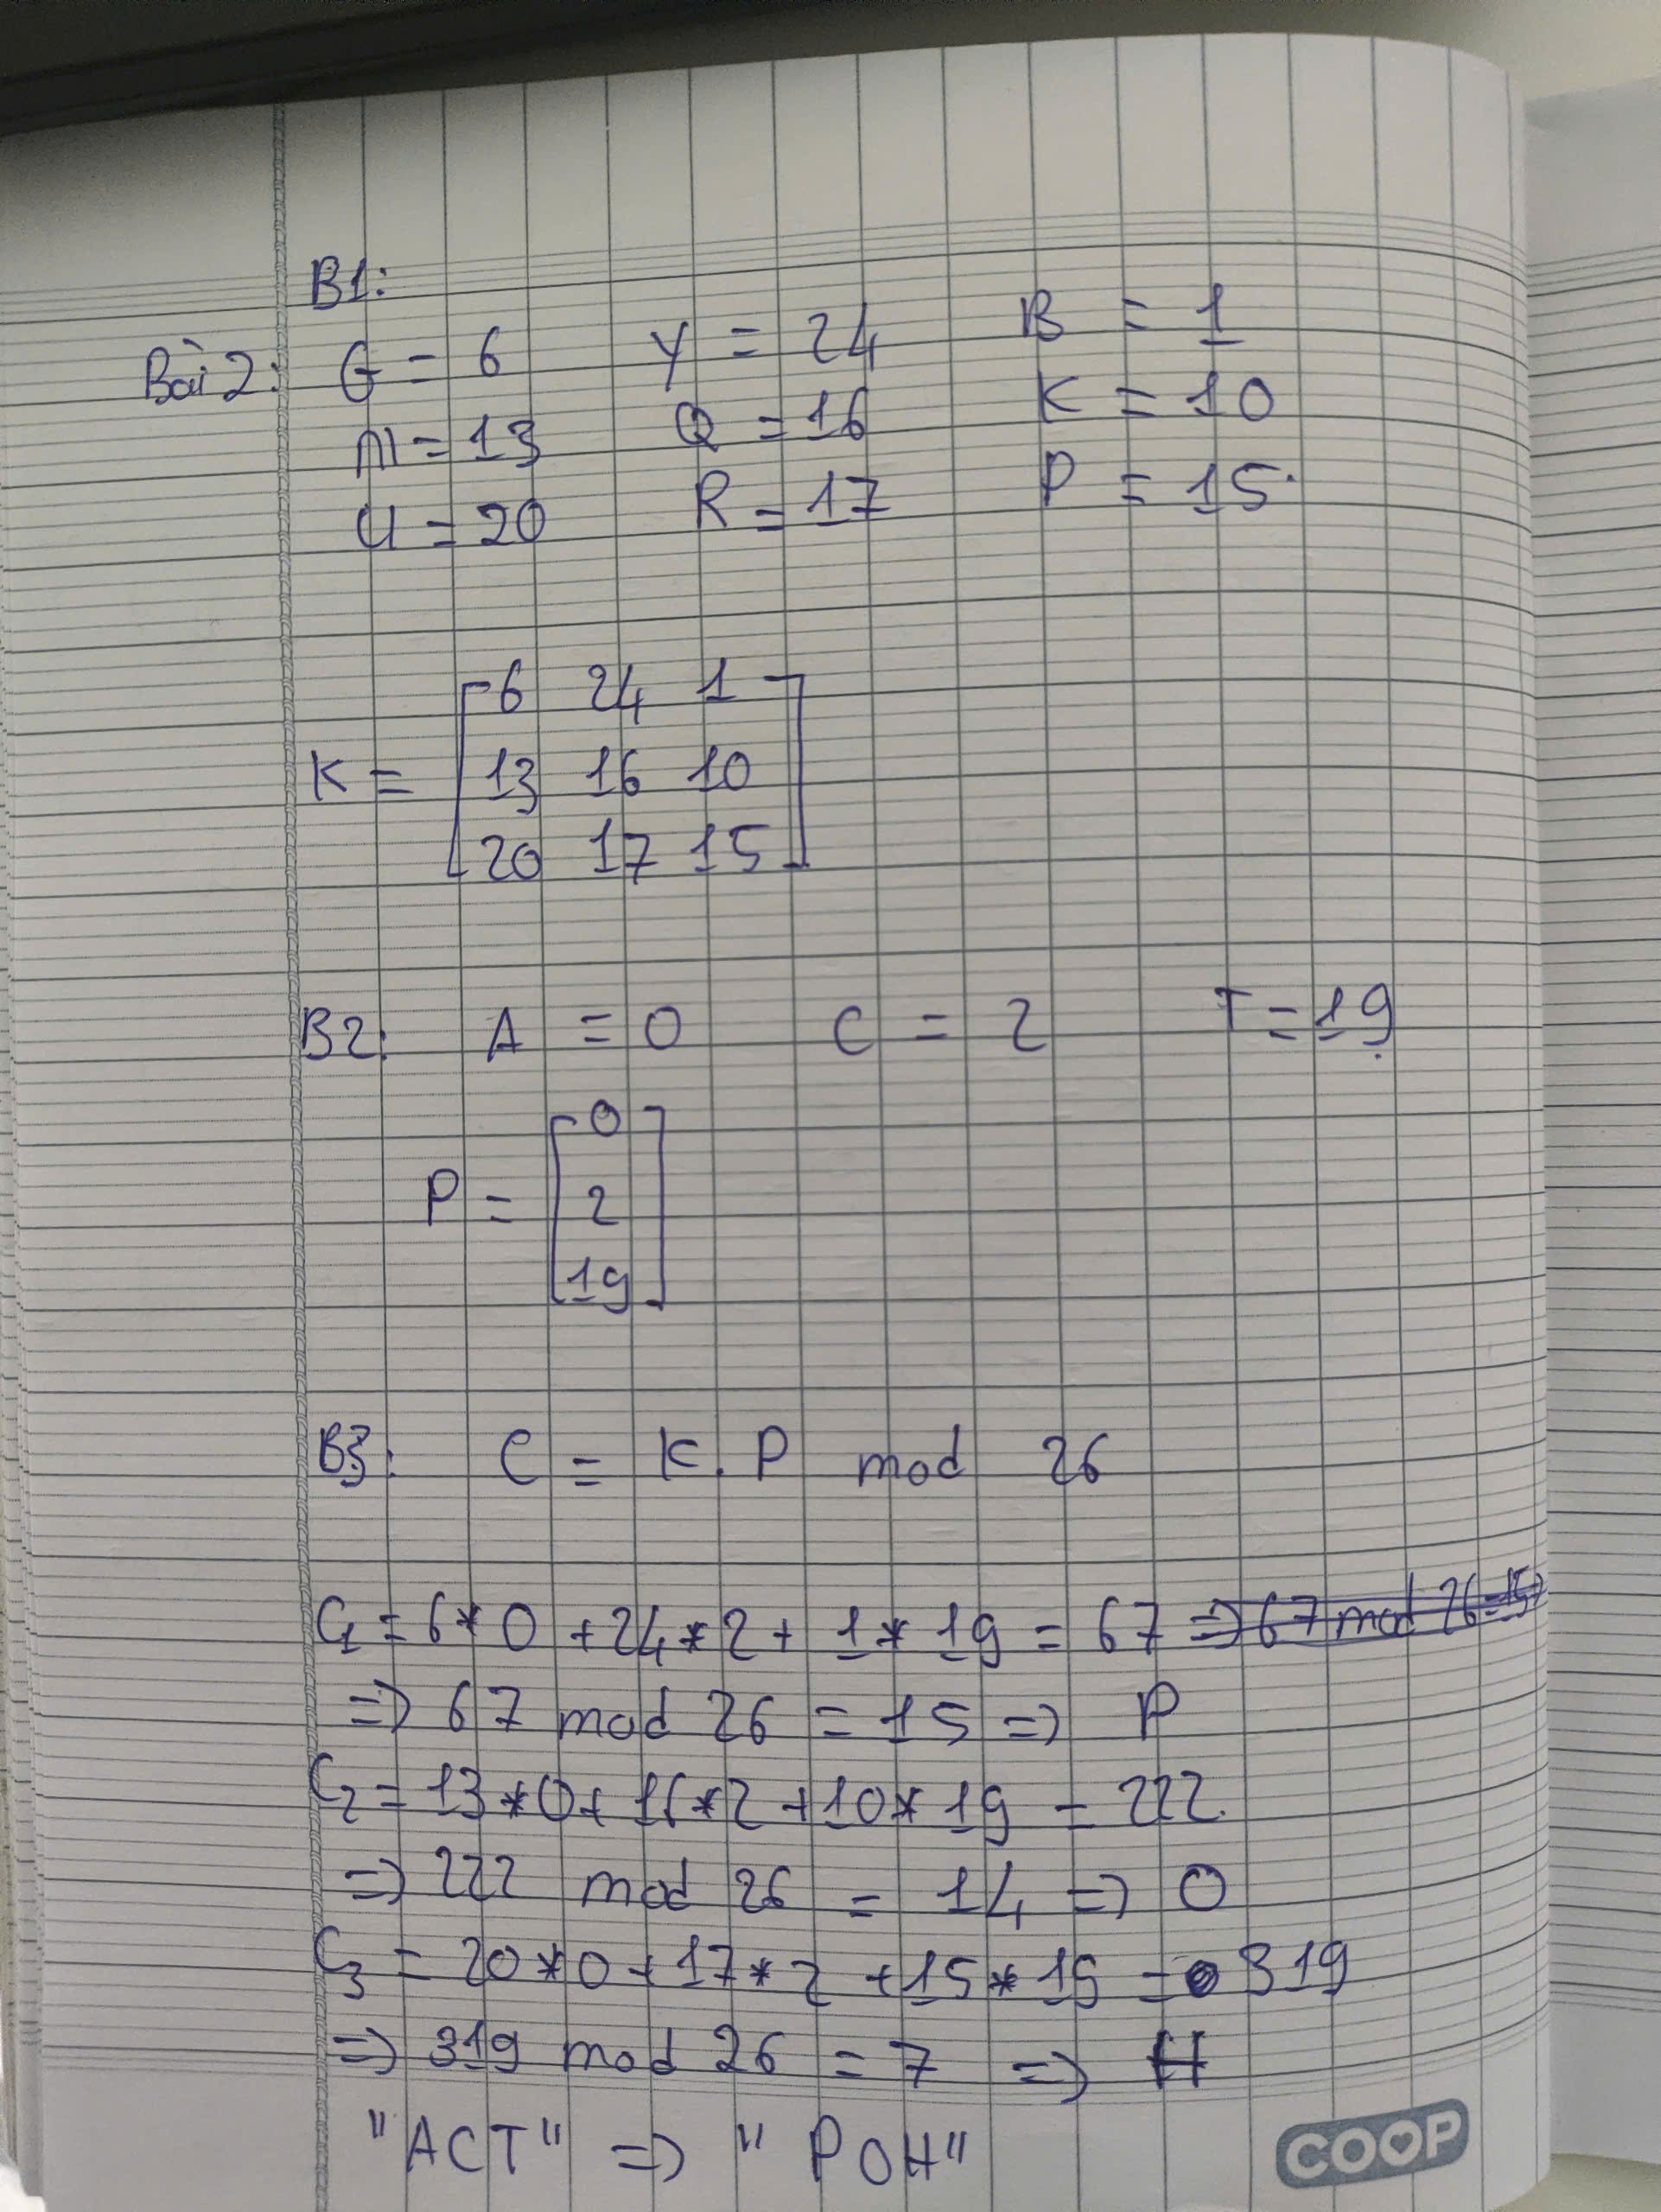 B1:
Bài 2: G = 6 Y = 24 B = 1
N = 13 Q = 16 K = 10
U = 20 R = 17 P = 15
K = [6 24 1
13 16 10
20 17 15]
B2: A = 0 C = 2 T = 19
P = [0
2
19]
B3: C = K . P mod 26
C1 = 6 * 0 + 24 * 2 + 1 * 19 = 67 => 67 mod 26 = 15
=> 67 mod 26 = 15 => P
C2 = 13 * 0 + 16 * 2 + 10 * 19 = 222
=> 222 mod 26 = 14 => O
C3 = 20 * 0 + 17 * 2 + 15 * 19 = 319
=> 319 mod 26 = 7 => H
"ACT" => "POH"
COOP